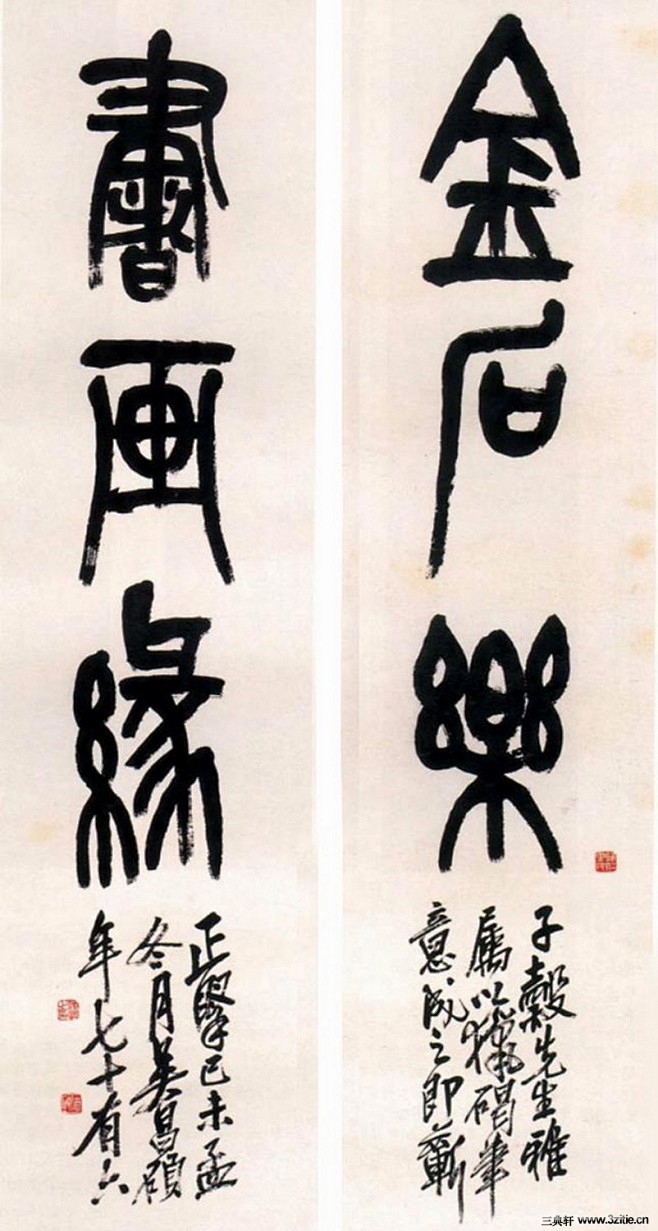 金石樂
子穀先生雅
屬以獵碣筆
意成之即蘄
書画緣
正擥己未孟
冬月吴昌碩
年七十有六
三典轩 www.3zitie.cn